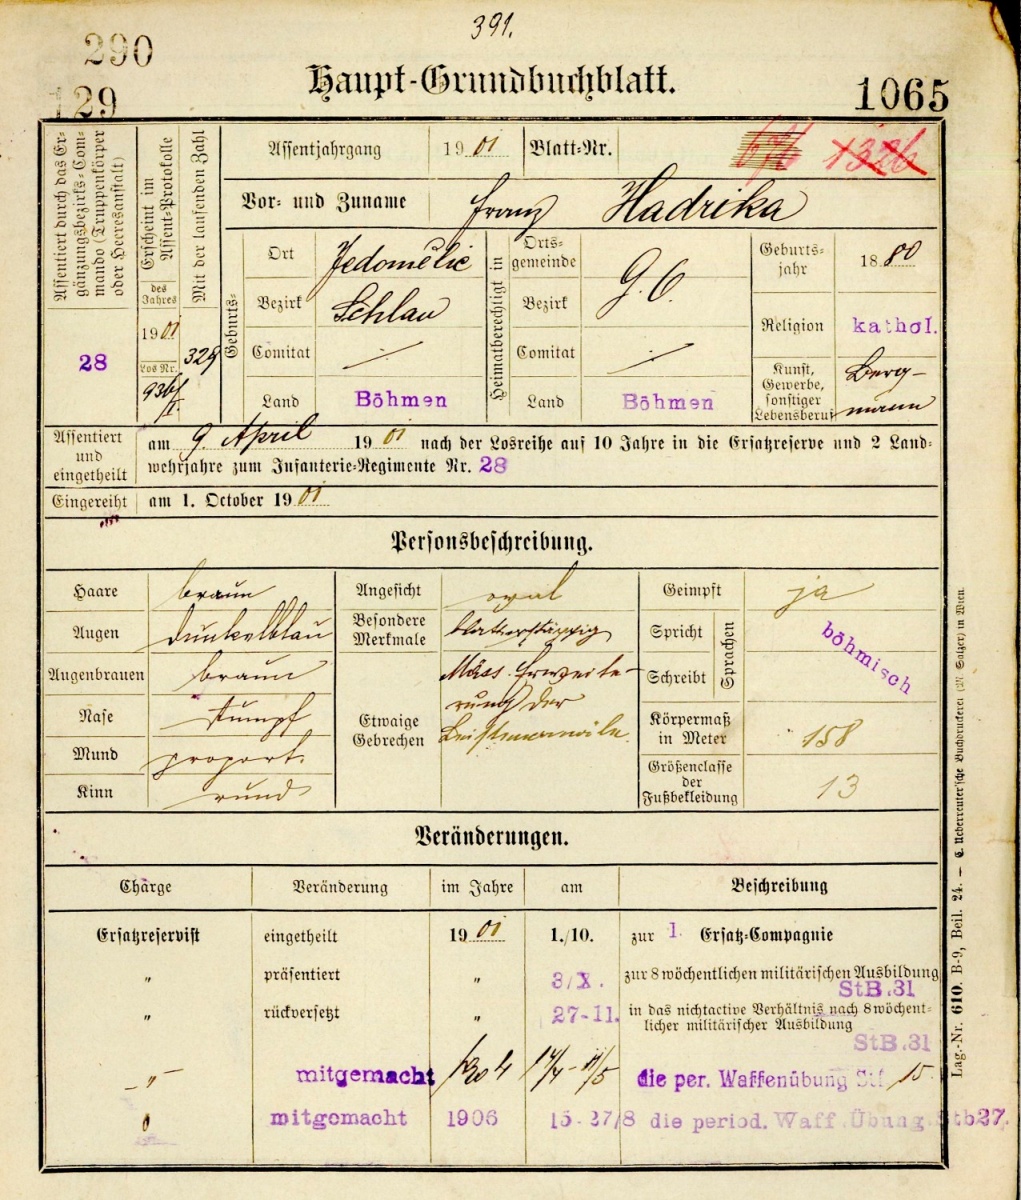 391.
290
129
Haupt-Grundbuchblatt.
1065
Assentiert durch das Er-
gänzungsbezirks-Com-
mando (Truppenkörper
oder Heeresanstalt)
28
Erscheint im
Assent-Protokolle
des
Jahres
1901
Los Nr.
Mit der laufenden Zahl
329
Assentjahrgang 1901 Blatt-Nr.
1326
Vor- und Zuname Franz Hadrika
Geburts-
Ort Jedomělic
Bezirk Schlan
Comitat ./.
Land Böhmen
Heimatberechtigt in
Orts-
gemeinde
Bezirk
G. O.
Comitat ./.
Land Böhmen
Geburts-
jahr 1880
Religion kathol.
Kunst,
Gewerbe,
sonstiger
Lebensberuf
Berg-
mann
Assentiert
und
eingetheilt
am 9. April 1901 nach der Losreihe auf 10 Jahre in die Ersatzreserve und 2 Land-
wehrjahre zum Infanterie-Regimente Nr. 28
Eingereiht am 1. October 1901
Personsbeschreibung.
Haare braun
Augen dunkelblau
Augenbrauen braun
Nase stumpf
Mund proport.
Kinn rund
Angesicht oval
Besondere
Merkmale
blatternarbig
Etwaige
Gebrechen
Mäss. Erweite-
rung der
Geimpft ja
Spricht
Schreibt
Sprachen
böhmisch
Körpermaß
in Meter 158
Größenclasse
der
Fußbekleidung 13
Veränderungen.
Charge Veränderung im Jahre am Beschreibung
Ersatzreservist eingetheilt 1901 1./10. zur 1. Ersatz-Compagnie
" präsentiert " 3/X. zur 8wöchentlichen militärischen Ausbildung
StB.31
" rückversetzt " 27-11. in das nichtactive Verhältnis nach 8wöchent-
licher militärischer Ausbildung
StB.31
-"- mitgemacht 1904 14/4-11/5 die per. Waffenübung Stf 15
mitgemacht 1906 15-27/8 die period. Waff.Übung.Stb27.
Lag.-Nr. 610. B-9, Beil. 24. — C. Ueberreuter'sche Buchdruckerei (M. Salzer) in Wien.